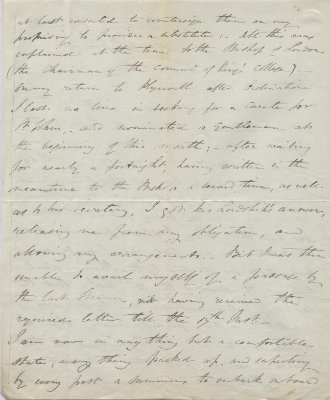 at last consented to countersign them on my
promising to provide a substitute :- All this was
explained at the time to the Bishop of London
(the Chairman of the Council of King's College)
On my return to Plymouth after ordination
I lost no time in seeking for a Curate for
St Johns, and nominated a gentleman at
the beginning of this month :- after waiting
for nearly a fortnight, having written in the
meantime to the Bishop a second time, as well
as to his secretary, I got his Lordship's answer,
releasing me from my obligation, and
allowing my arrangements. - But I was then
unable to avail myself of a passage by
the last Steamer, not having received the
required letter till the 17th Inst.
I am now in any thing but a comfortable
state, every thing packed up, and expecting
by every post a summons to embark on board